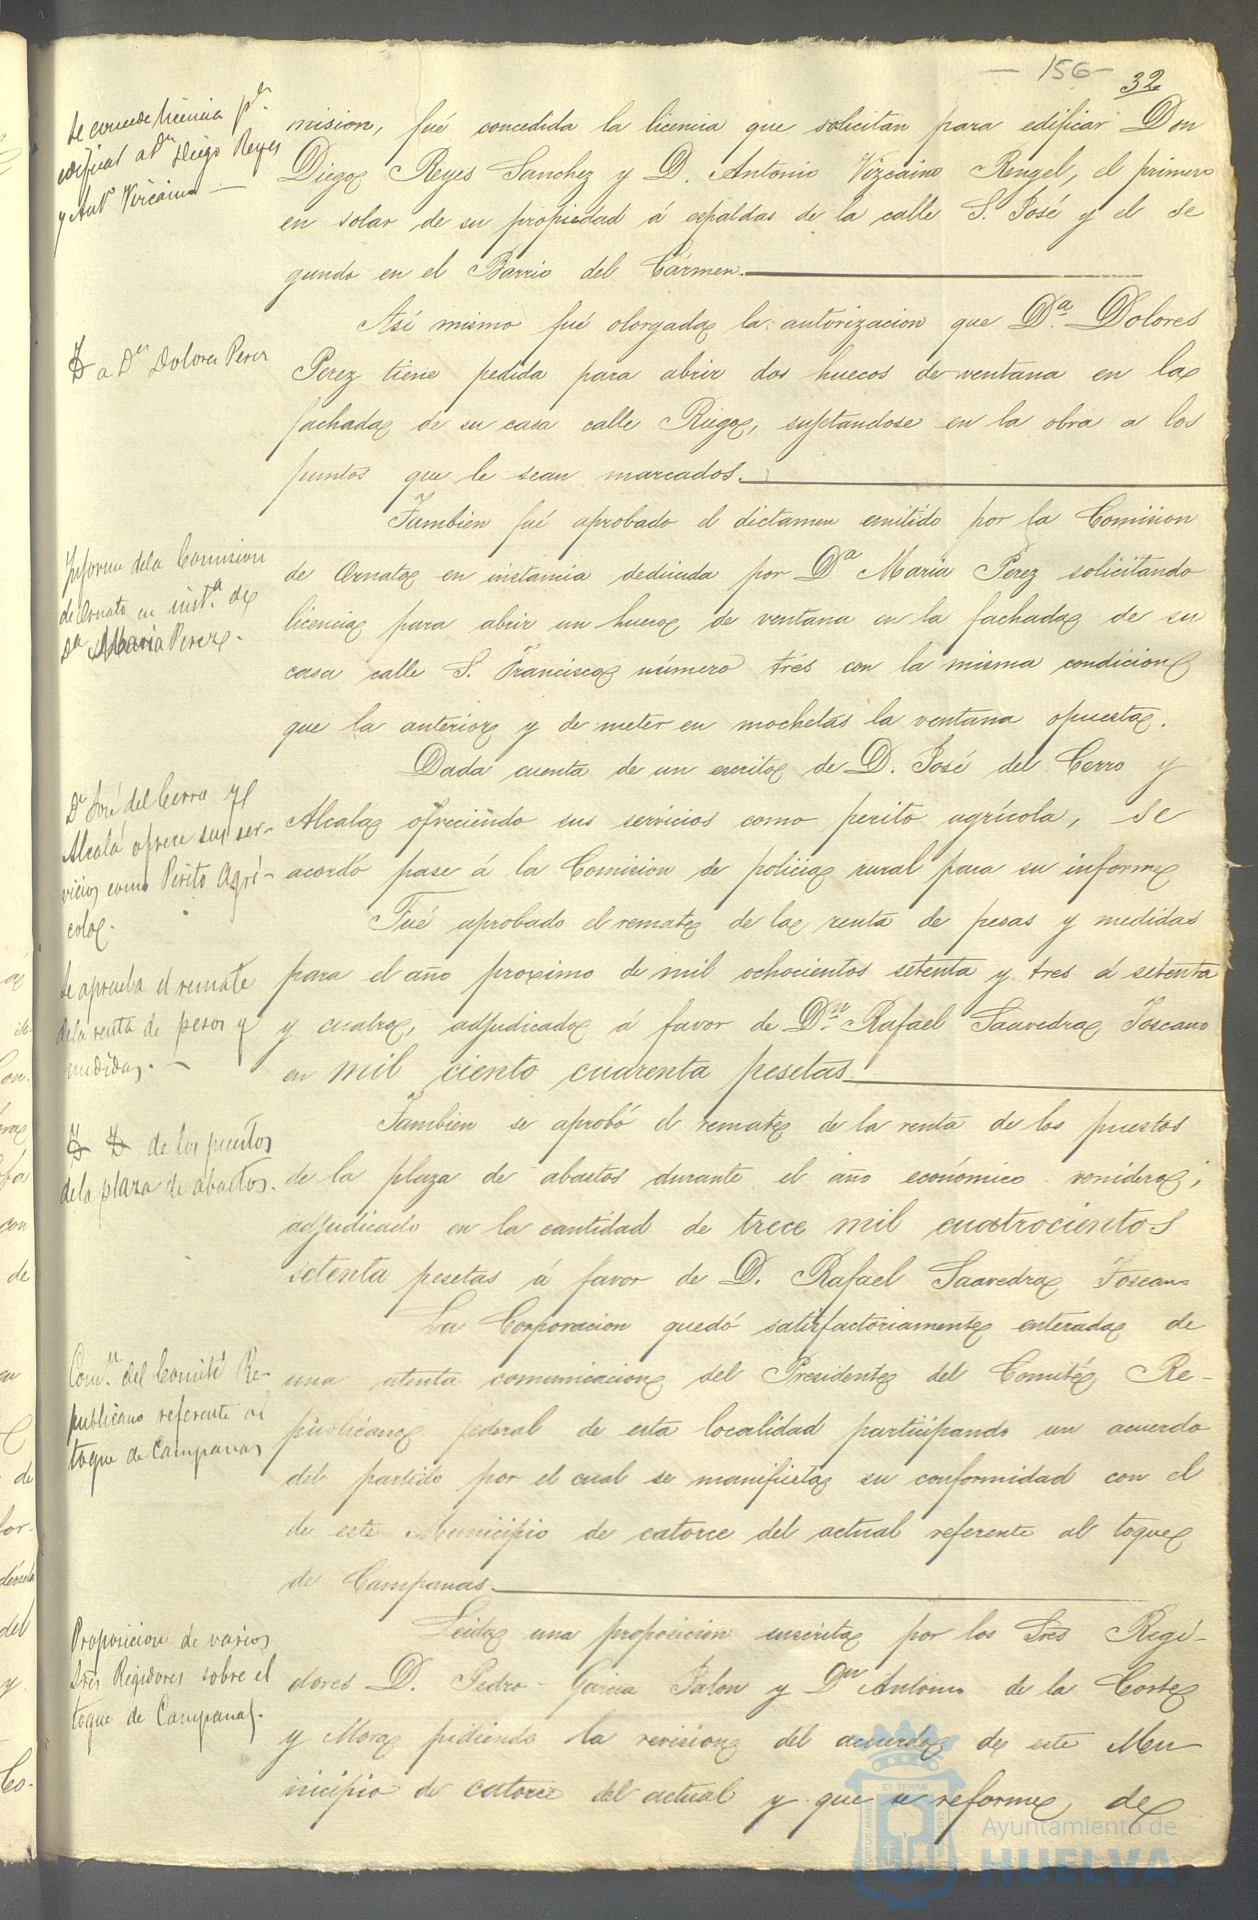 — 156 —
32
Se concede licencia pª
edificar a Dn Diego Reyes
y Antº Vizcaino —
mision, fué concedida la licencia que solicitan para edificar Don
Diego Reyes Sanchez y D. Antonio Vizcaino Rengel, el primero
en solar de su propiedad á espaldas de la calle S. José y el se
gundo en el Barrio del Cármen.
Id a Dª Dolores Perez
Así mismo fué otorgada la autorizacion que Dª Dolores
Perez tiene pedida para abrir dos huecos de ventana en la
fachada de su casa calle Riego, sujetandose en la obra a los
puntos que le sean marcados.
Informe dela Comision
de Ornato en instª de
Dª Maria Perez.
Tambien fué aprobado el dictamen emitido por la Comision
de Ornato en instancia deducida por Dª Maria Perez solicitando
licencia para abrir un hueco de ventana en la fachada de su
casa calle S. Francisco número trés con la misma condicion
que la anterior y de meter en mochetas la ventana opuesta.
Dn José del Cerro y
Alcalá ofrece sus ser-
vicios como Perito Agrí-
cola.
Dada cuenta de un escrito de D. José del Cerro y
Alcalá ofreciendo sus servicios como perito agrícola, se
acordó pase á la Comision de policia rural para su informe
Se aprueba el remate
dela renta de pesos y
medidas. —
Fué aprobado el remate de la renta de pesas y medidas
para el año proximo de mil ochocientos setenta y tres á setenta
y cuatro, adjudicado á favor de Dn Rafael Saavedra Toscano
en mil ciento cuarenta pesetas.
Id Id de los puestos
dela plaza de abastos.
Tambien se aprobó el remate de la renta de los puestos
de la plaza de abastos durante el año económico venidero;
adjudicado en la cantidad de trece mil cuatrocientos
setenta pesetas á favor de D. Rafael Saavedra Toscano
Comn del Comité Re-
publicano referente al
toque de Campanas
La Corporacion quedó satisfactoriamente enterada de
una atenta comunicacion del Presidente del Comité Re-
publicano federal de esta localidad participando un acuerdo
del partido por el cual se manifiesta su conformidad con el
de este Municipio de catorce del actual referente al toque
de Campanas.
Proposicion de varios
Sres Regidores sobre el
toque de Campanas.
Leida una proposicion suscrita por los Sres Regi-
dores D. Pedro Garcia Jalon y Dn Antonio de la Corte
y Mora pidiendo la revision del acuerdo de este Mu
nicipio de catorce del actual y que se reforme, de
Ayuntamiento de
HUELVA